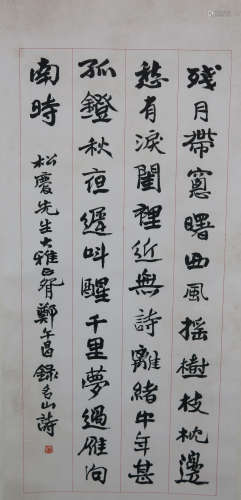 殘月帶窗曙西風搖樹枝枕邊
愁有淚閨裡近無詩離緒牛年甚
孤鐙秋夜遲叫醒千里夢過雁向
南時
松慶先生大雅正腎鄭午昌錄名山詩